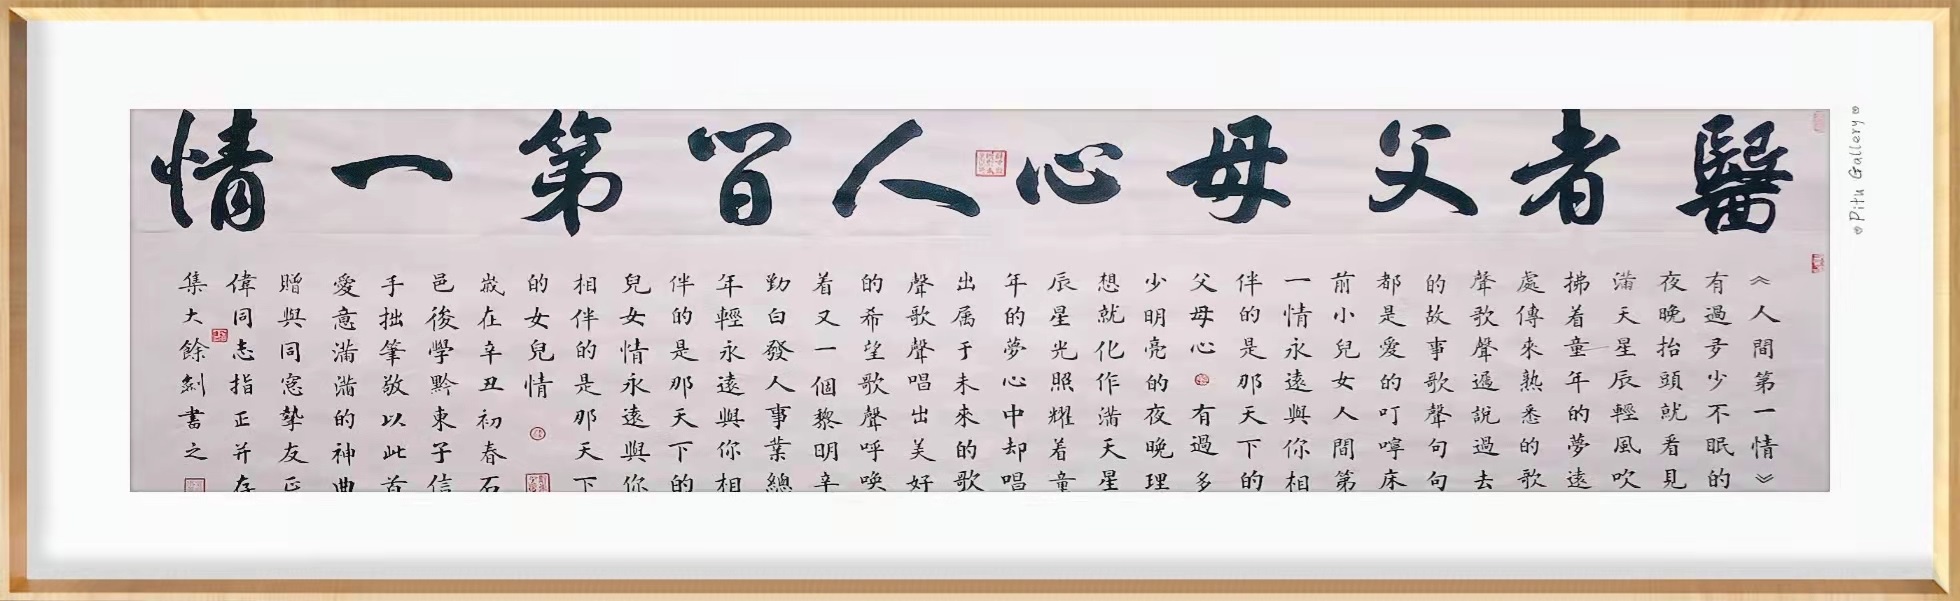 醫者父母心人間第一情
《人間第一情》
有過多少不眠的
夜晚抬頭就看見
滿天星辰輕風吹
拂着童年的夢遠
處傳來熟悉的歌
聲歌聲遍說過去
的故事歌聲句句
都是愛的叮嚀床
前小兒女人間第
一情永遠與你相
伴的是那天下的
父母心有過多
少明亮的夜晚理
想就化作滿天星
辰星光照耀着童
年的夢心中却唱
出属于未來的歌
聲歌聲唱出美好
的希望歌聲呼喚
着又一個黎明辛
勤白發人事業總
年輕永遠與你相
伴的是那天下的
兒女情永遠與你
相伴的是那天下
的女兒情
歲在辛丑初春石
邑後學黔東子信
手拙筆敬以此首
愛意滿滿的神曲
贈與同窓摯友正
偉同志指正并存
集大餘劍書之
Pith Gallery